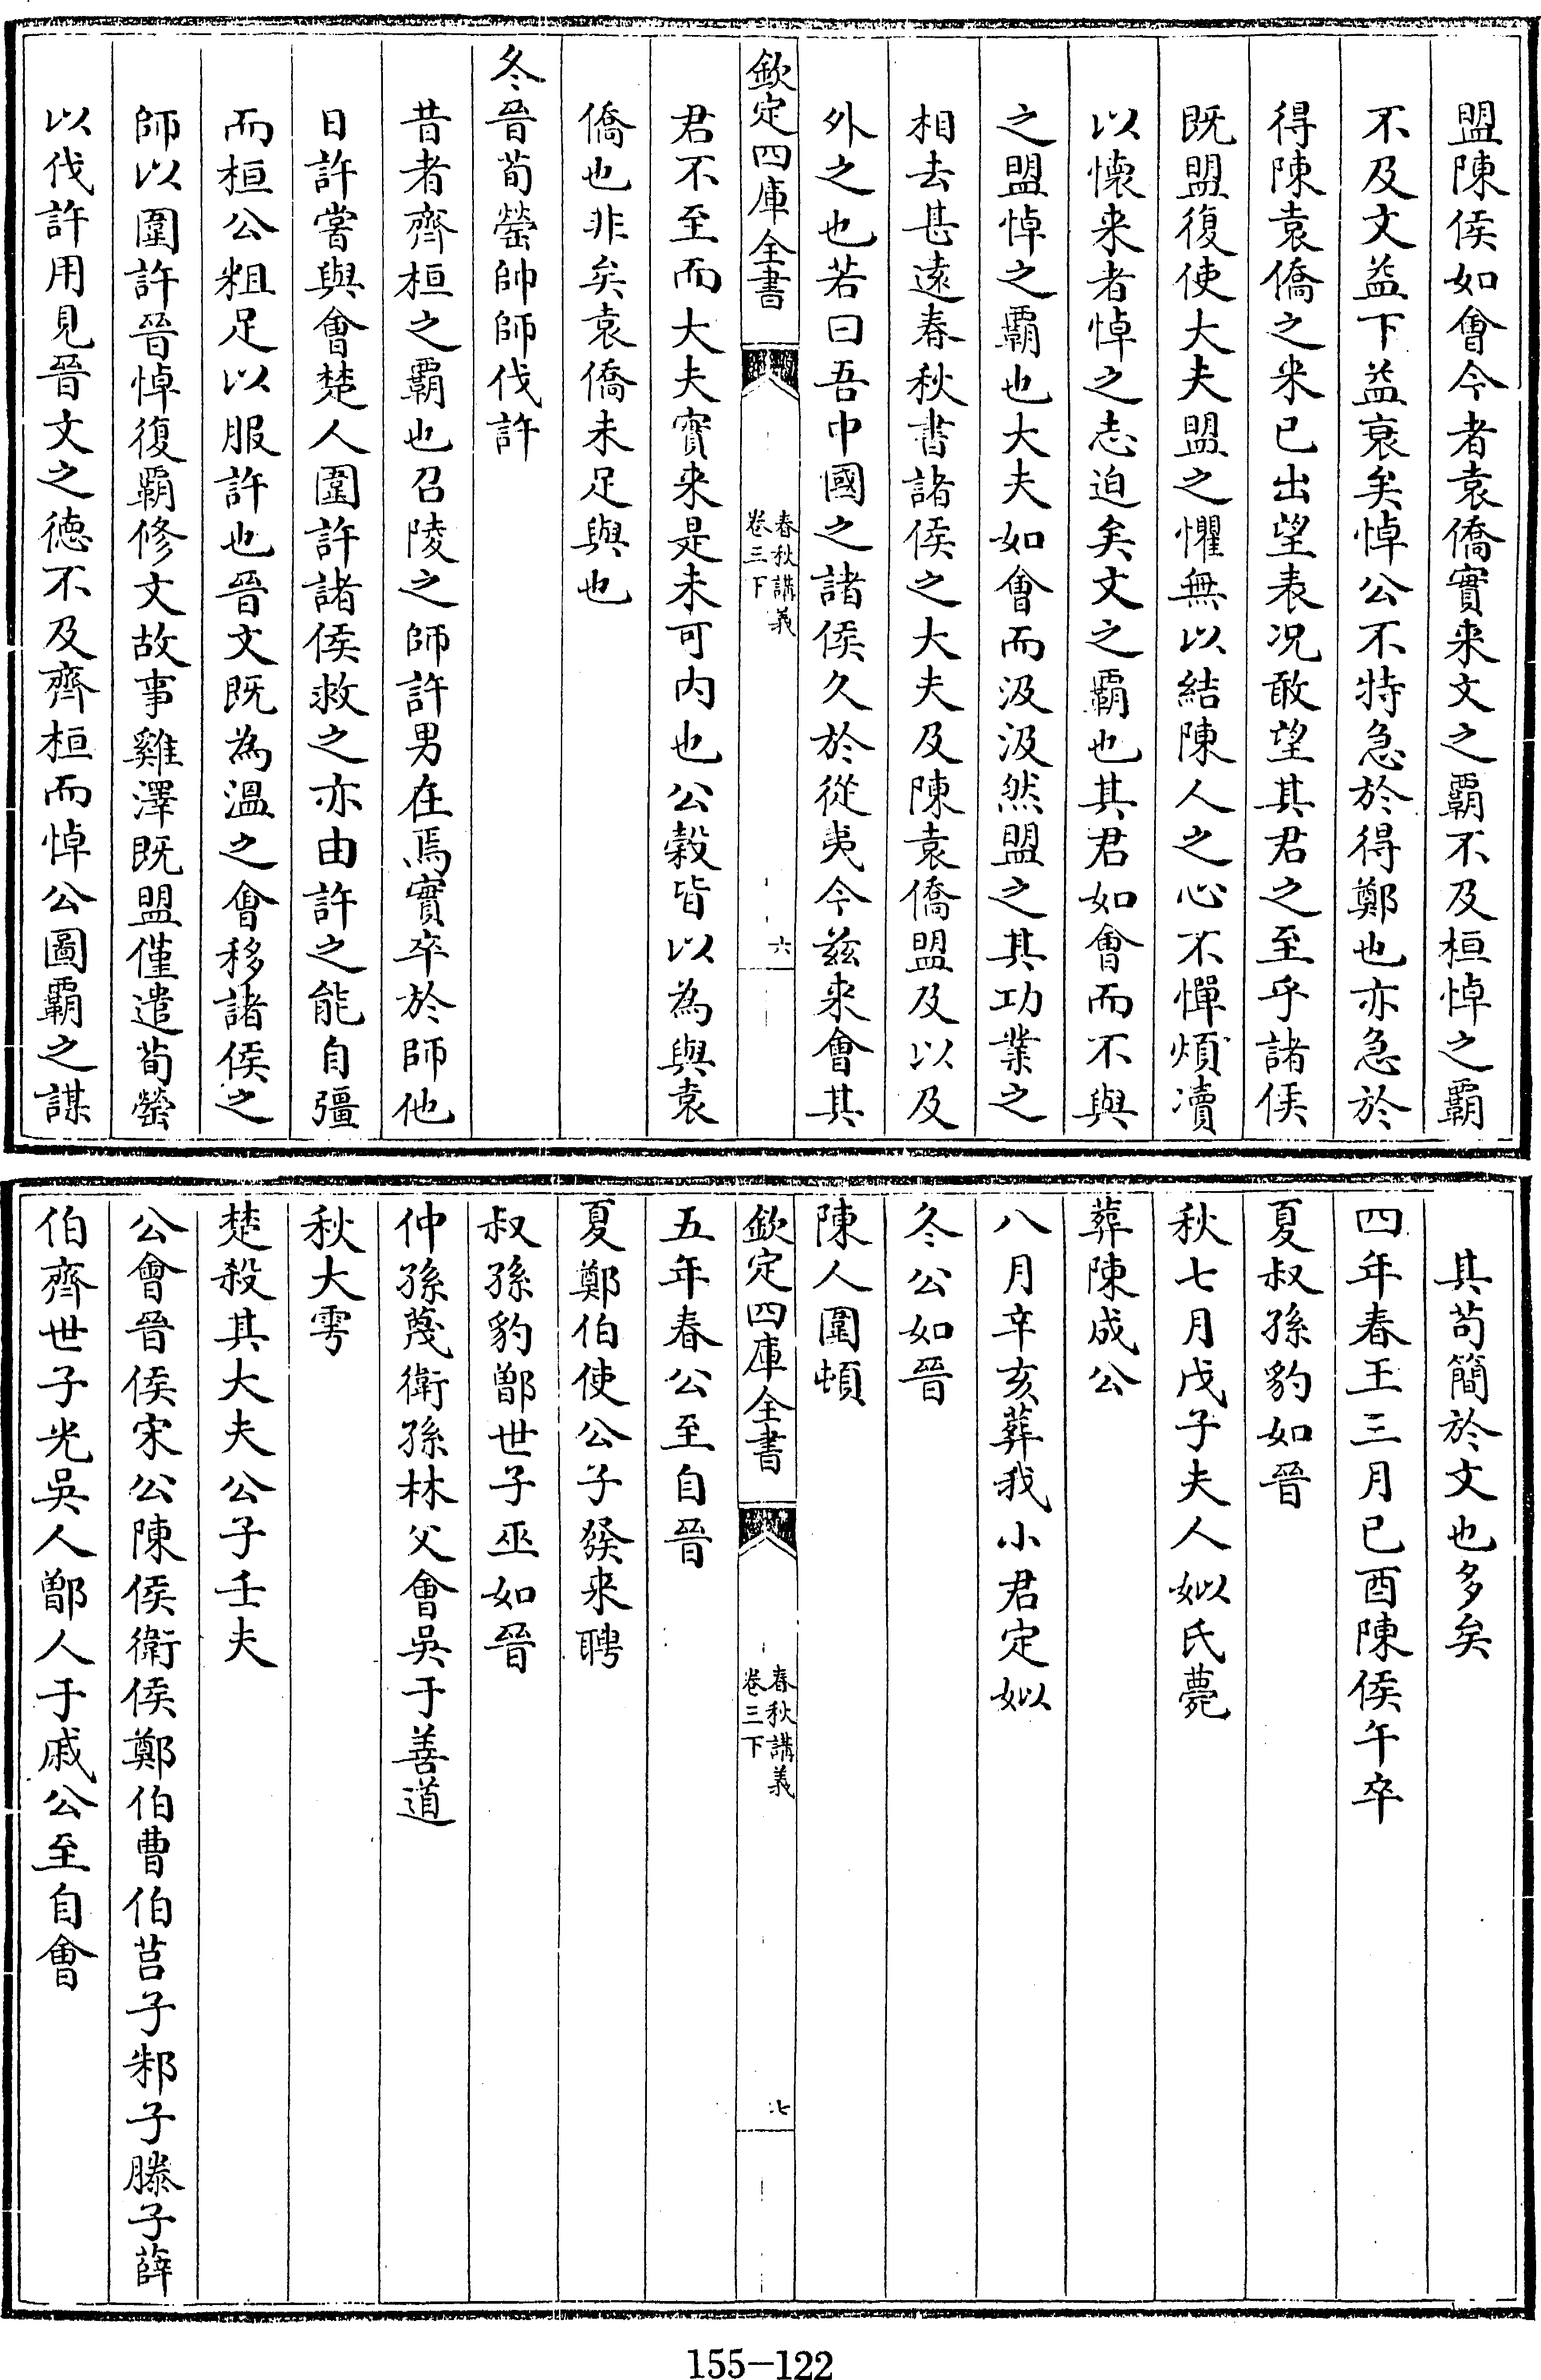 盟陳侯如會今者袁僑實来文之覇不及桓悼之覇
不及文益下益衰矣悼公不特急於得鄭也亦急於
得陳袁僑之来已出望表况敢望其君之至乎諸侯
既盟復使大夫盟之懼無以結陳人之心不憚煩凟
以懷来者悼之志迫矣文之覇也其君如會而不與
之盟悼之覇也大夫如會而汲汲然盟之其功業之
相去甚逺春秋書諸侯之大夫及陳袁僑盟及以及
外之也若曰吾中國之諸侯久於從夷今兹来會其
欽定四庫全書
春秋講義
卷三下
六
君不至而大夫實来是未可内也公穀皆以為與袁
僑也非矣袁僑未足與也
冬晉荀罃帥師伐許
昔者齊桓之覇也召陵之師許男在焉實卒於師他
日許嘗與會楚人圍許諸侯救之亦由許之能自彊
而桓公粗足以服許也晉文既為温之會移諸侯之
師以圍許晉悼復覇修文故事雞澤既盟僅遣荀罃
以伐許用見晉文之德不及齊桓而悼公圖覇之謀
其苟簡於文也多矣
四年春王三月已酉陳侯午卒
夏叔孫豹如晉
秋七月戊子夫人姒氏薨
葬陳成公
八月辛亥葬我小君定姒
冬公如晉
陳人圍頓
欽定四庫全書
春秋講義
卷三下
七
五年春公至自晉
夏鄭伯使公子發来聘
叔孫豹鄫世子巫如晉
仲孫蔑衛孫林父會吳于善道
秋大雩
楚殺其大夫公子壬夫
公會晉侯宋公陳侯衛侯鄭伯曹伯莒子邾子滕子薛
伯齊世子光吳人鄫人于戚公至自會
155-122